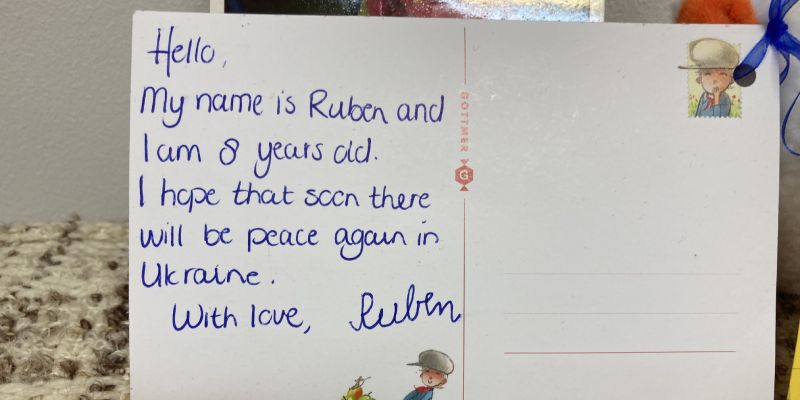 Hello,
My name is Ruben and
I am 8 years old.
I hope that soon there
will be peace again in
Ukraine.
With love, Ruben
GOTTMER
G